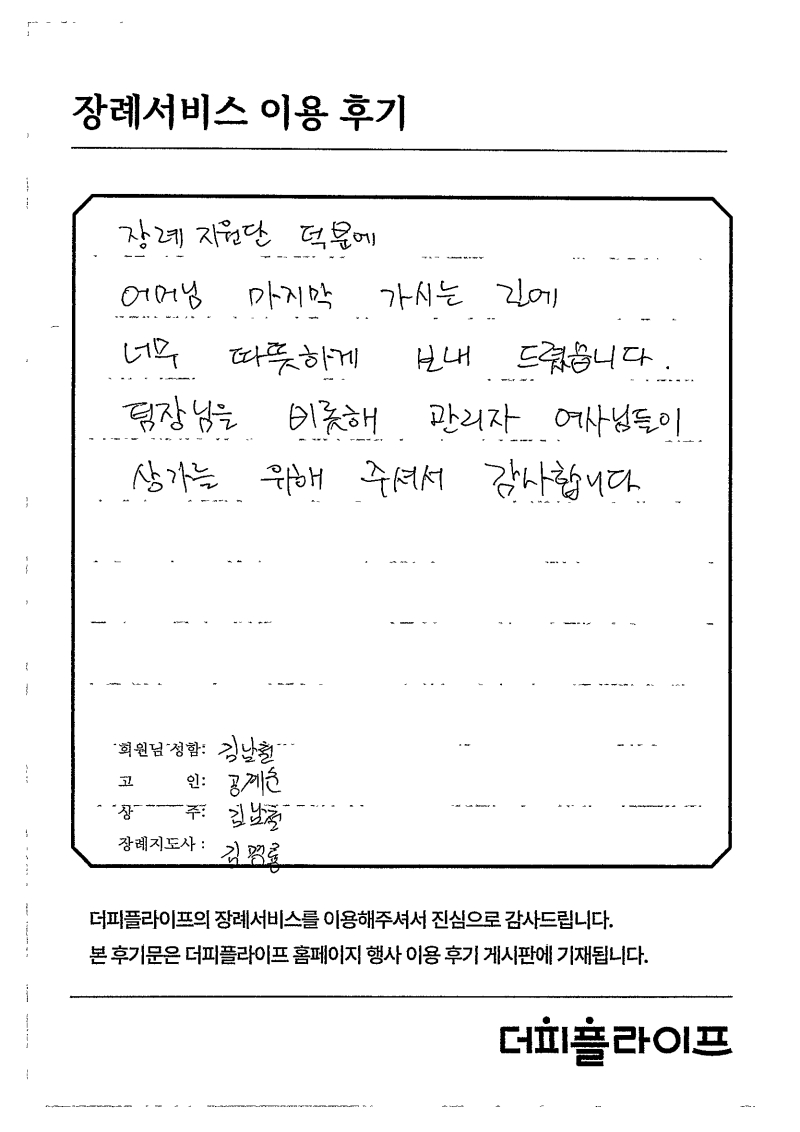 장례서비스 이용 후기
장례 지원단 덕분에
어머님 마지막 가시는 길에
너무 따뜻하게 보내 드렸습니다.
팀장님을 비롯해 관리자 여사님들이
상가는 위해 주셔서 감사합니다
회원님 성함: 김남훈
고 인: 공계순
상 주: 김남훈
장례지도사: 김명룡
더피플라이프의 장례서비스를 이용해주셔서 진심으로 감사드립니다.
본 후기문은 더피플라이프 홈페이지 행사 이용 후기 게시판에 기재됩니다.
더피플라이프